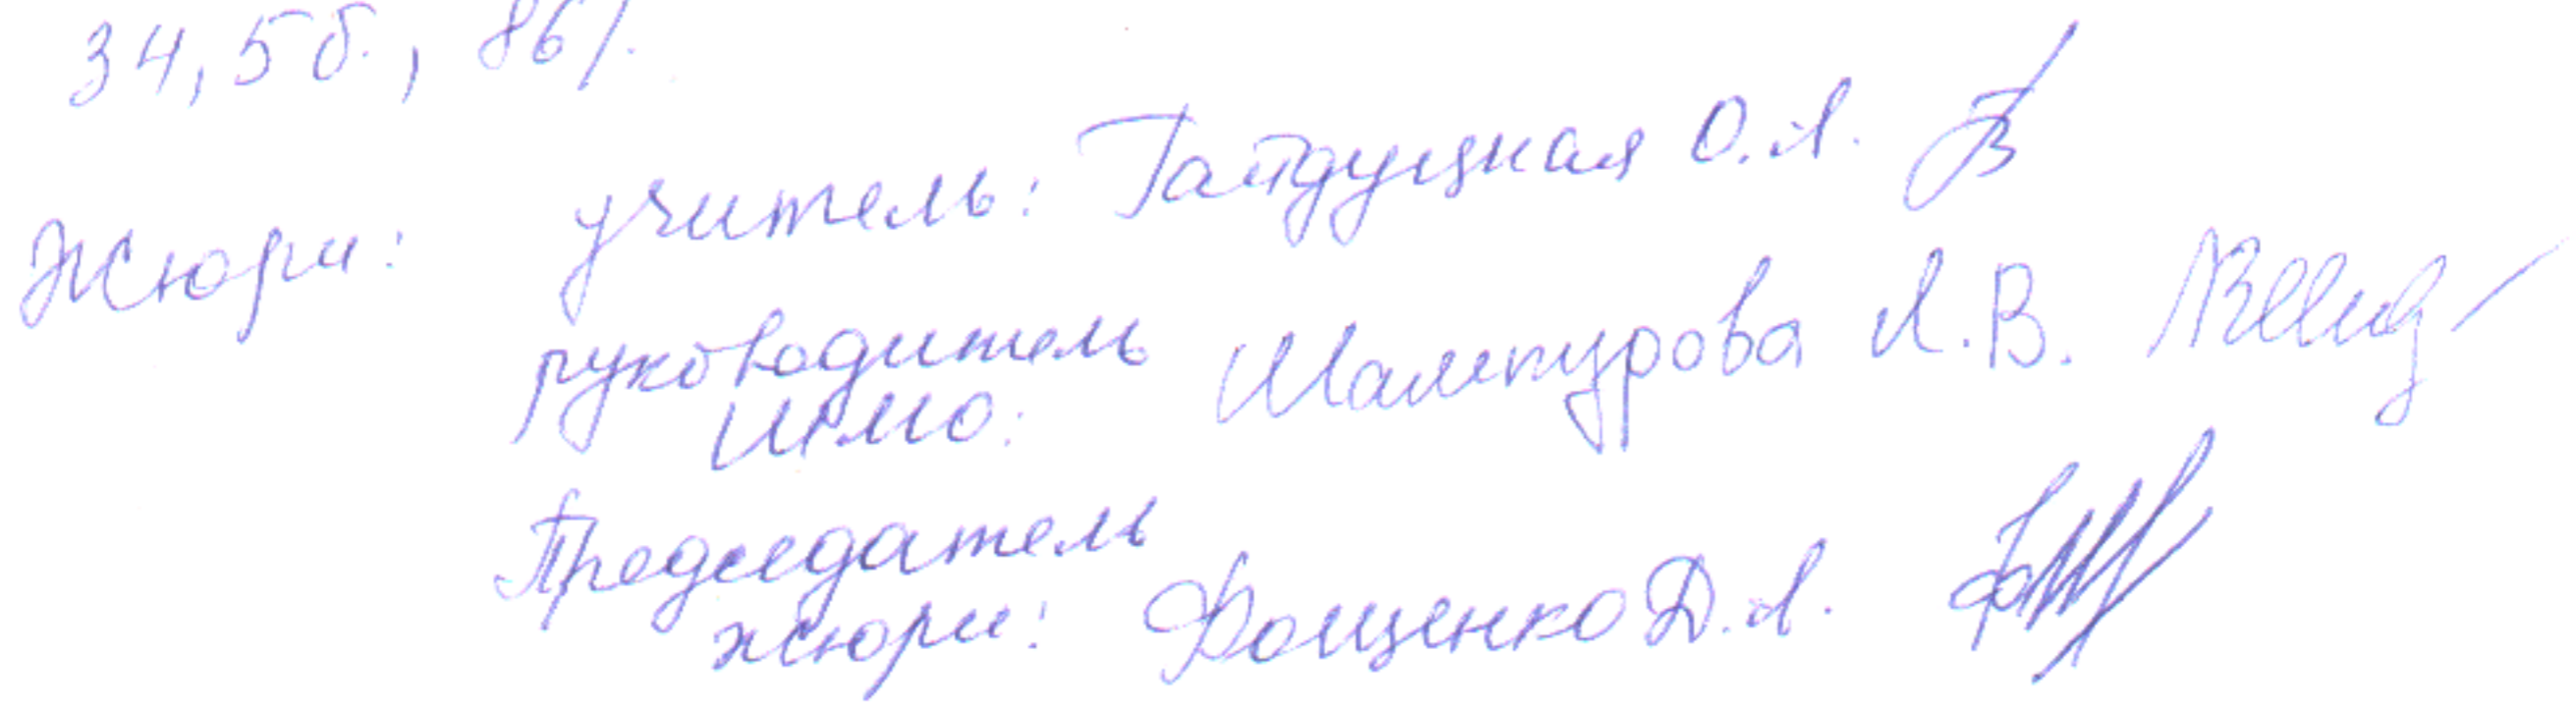 34,5 б., 86%
Жюри: учитель: Гайдуцкая О.А.
руководитель Шампурова Л.В.
ШМО:
Председатель
жюри: Фощенко Д.А.